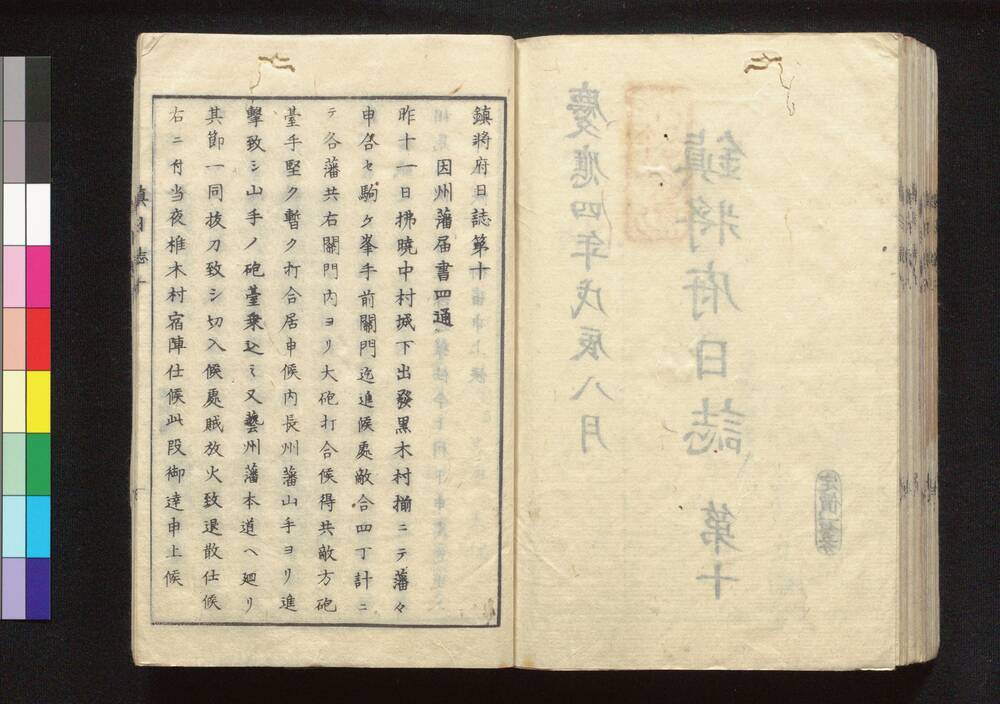 慶應四年戊辰八月
鎮将府日誌 第十
鎮将府日誌第十
因州藩届書四通
昨十一日拂曉中村城下出發黒木村揃ニテ藩々
申合セ駒ケ峯手前關門迄進候處敵合四丁計ニ
テ各藩共右關門内ヨリ大砲打合候得共敵方砲
臺手堅ク暫ク打合居申候内長州藩山手ヨリ進
擊致シ山手ノ砲臺乗込ミ又藝州藩本道ヘ廻リ
其節一同抜刀致シ切入候處賊放火致退散仕候
右ニ付当夜椎木村宿陣仕候此段御達申上候